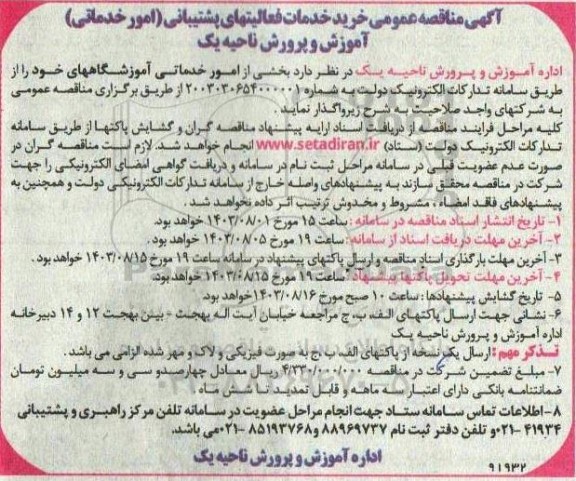 آگهی مناقصه عمومی خرید خدمات فعالیتهای پشتیبانی (امور خدماتی)
آموزش و پرورش ناحیه یک
اداره آموزش و پرورش ناحیه یک در نظر دارد بخشی از امور خدماتی آموزشگاههای خود را از
طریق سامانه تدارکات الکترونیک دولت به شماره ۲۰۰۳۰۳۰۶۵۴۰۰۰۰۰۱ از طریق برگزاری مناقصه عمومی
به شرکتهای واجد صلاحیت به شرح زیر واگذار نماید.
کلیه مراحل فرایند مناقصه از دریافت اسناد ارایه پیشنهاد مناقصه گران و گشایش پاکتها از طریق سامانه
تدارکات الکترونیک دولت (ستاد) www.setadiran.ir انجام خواهد شد. لازم است مناقصه گران در
صورت عدم عضویت قبلی در سامانه مراحل ثبت نام در سامانه و دریافت گواهی امضای الکترونیکی را جهت
شرکت در مناقصه محقق سازند به پیشنهادهای واصله خارج از سامانه تدارکات الکترونیکی دولت و همچنین به
پیشنهادهای فاقد امضاء، مشروط و مخدوش ترتیب اثر داده نخواهد شد.
۱- تاریخ انتشار اسناد مناقصه در سامانه: ساعت ۱۵ مورخ ۱۴۰۳/۰۸/۰۱ خواهد بود.
۲- آخرین مهلت دریافت اسناد از سامانه: ساعت ۱۹ مورخ ۱۴۰۳/۰۸/۰۵ خواهد بود.
۳- آخرین مهلت بارگذاری اسناد مناقصه و ارسال پاکتهای پیشنهاد در سامانه ساعت ۱۹ مورخ ۱۴۰۳/۰۸/۱۵ خواهد بود.
۴- آخرین مهلت تحویل پاکتها پیشنهاد: ساعت ۱۹ مورخ ۱۴۰۳/۰۸/۱۵ خواهد بود.
۵- تاریخ گشایش پیشنهادها: ساعت ۱۰ صبح مورخ ۱۴۰۳/۰۸/۱۶ خواهد بود.
۶- نشانی جهت ارسال پاکتهای الف، ب، ج مراجعه خیابان آیت اله بهجت - بین بهجت ۱۲ و ۱۴ دبیرخانه
اداره آموزش و پرورش ناحیه یک
تذکر مهم: ارسال یک نسخه از پاکتهای الف، ب، ج به صورت فیزیکی و لاک و مهر شده الزامی می باشد.
۷- مبلغ تضمین شرکت در مناقصه ۴/۳۳۰/۰۰۰/۰۰۰ ریال معادل چهارصدو سی و سه میلیون تومان
ضمانتنامه بانکی دارای اعتبار سه ماهه و قابل تمدید تا شش ماه
۸- اطلاعات تماس سامانه ستاد جهت انجام مراحل عضویت در سامانه تلفن مرکز راهبری و پشتیبانی
۴۱۹۳۴-۰۲۱ و تلفن دفتر ثبت نام ۸۸۹۶۹۷۳۷ و ۸۵۱۹۳۷۶۸-۰۲۱ می باشد.
اداره آموزش و پرورش ناحیه یک
۹۱۹۳۲